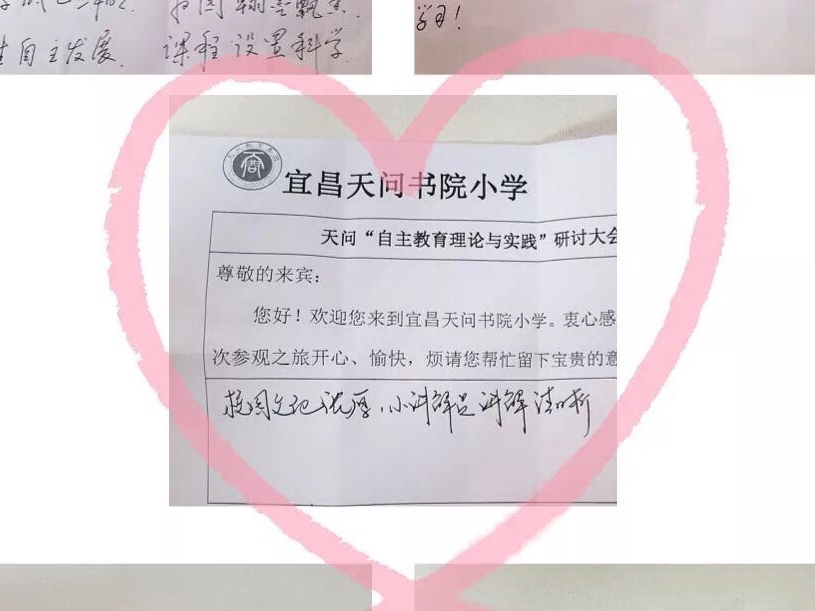 校园翰墨飘香.
生自主发展、课程设置科学
学习!
宜昌天问书院小学
天问“自主教育理论与实践”研讨大会
尊敬的来宾:
您好!欢迎您来到宜昌天问书院小学。衷心感
次参观之旅开心、愉快,烦请您帮忙留下宝贵的意
校园文化浓厚,小讲解员讲解清晰